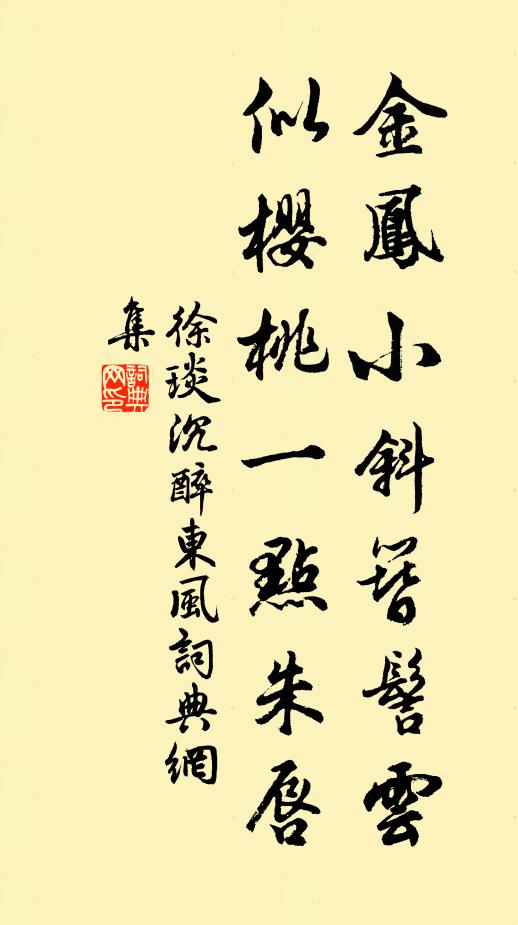 金鳳小斜簪髻雲
似櫻桃一點朱唇
徐琰沉醉東風詞典網
集
詞典網印